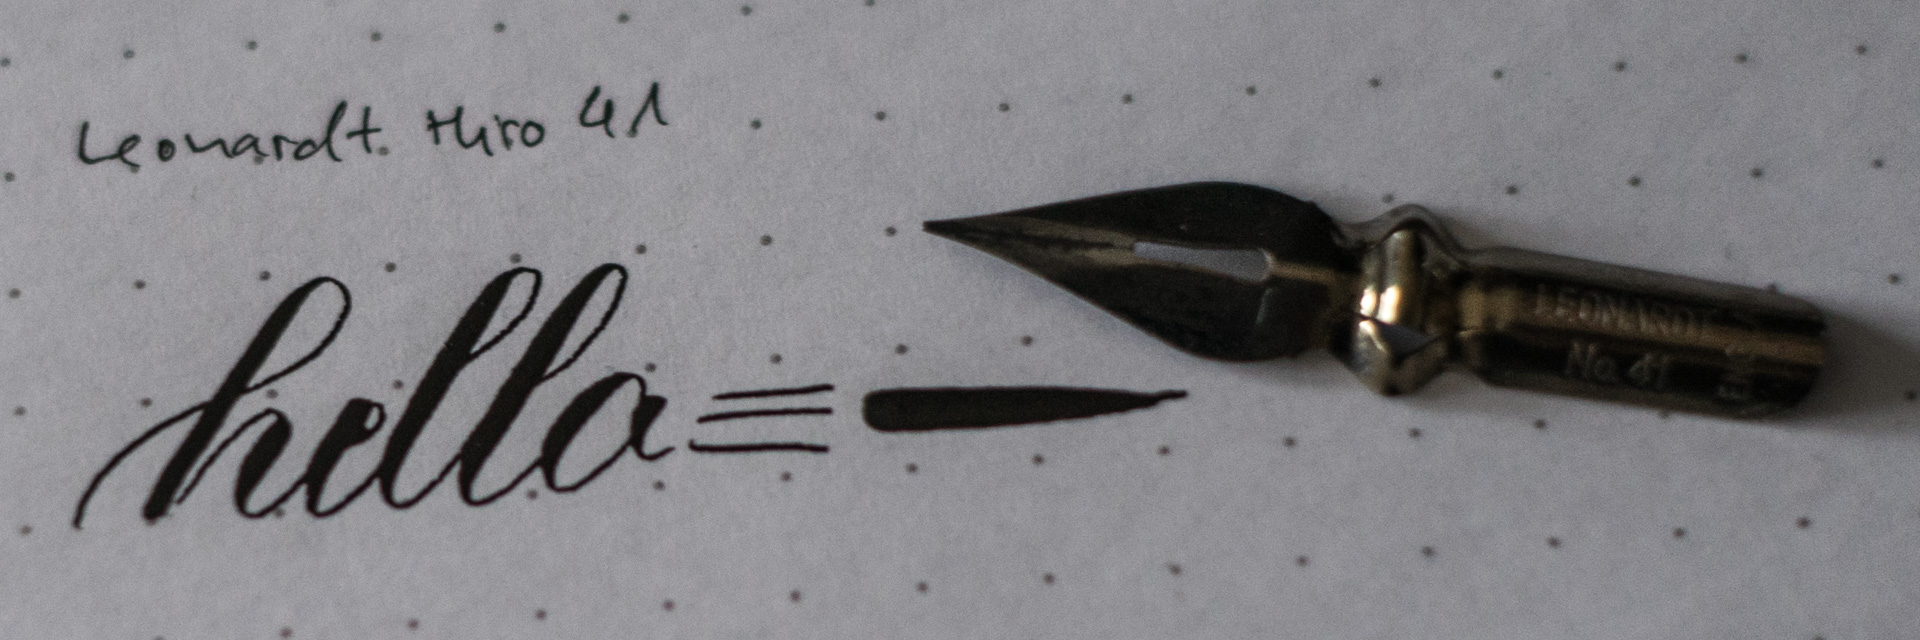 Leonardt Hiro 41
hello
LEONARDT
No 41